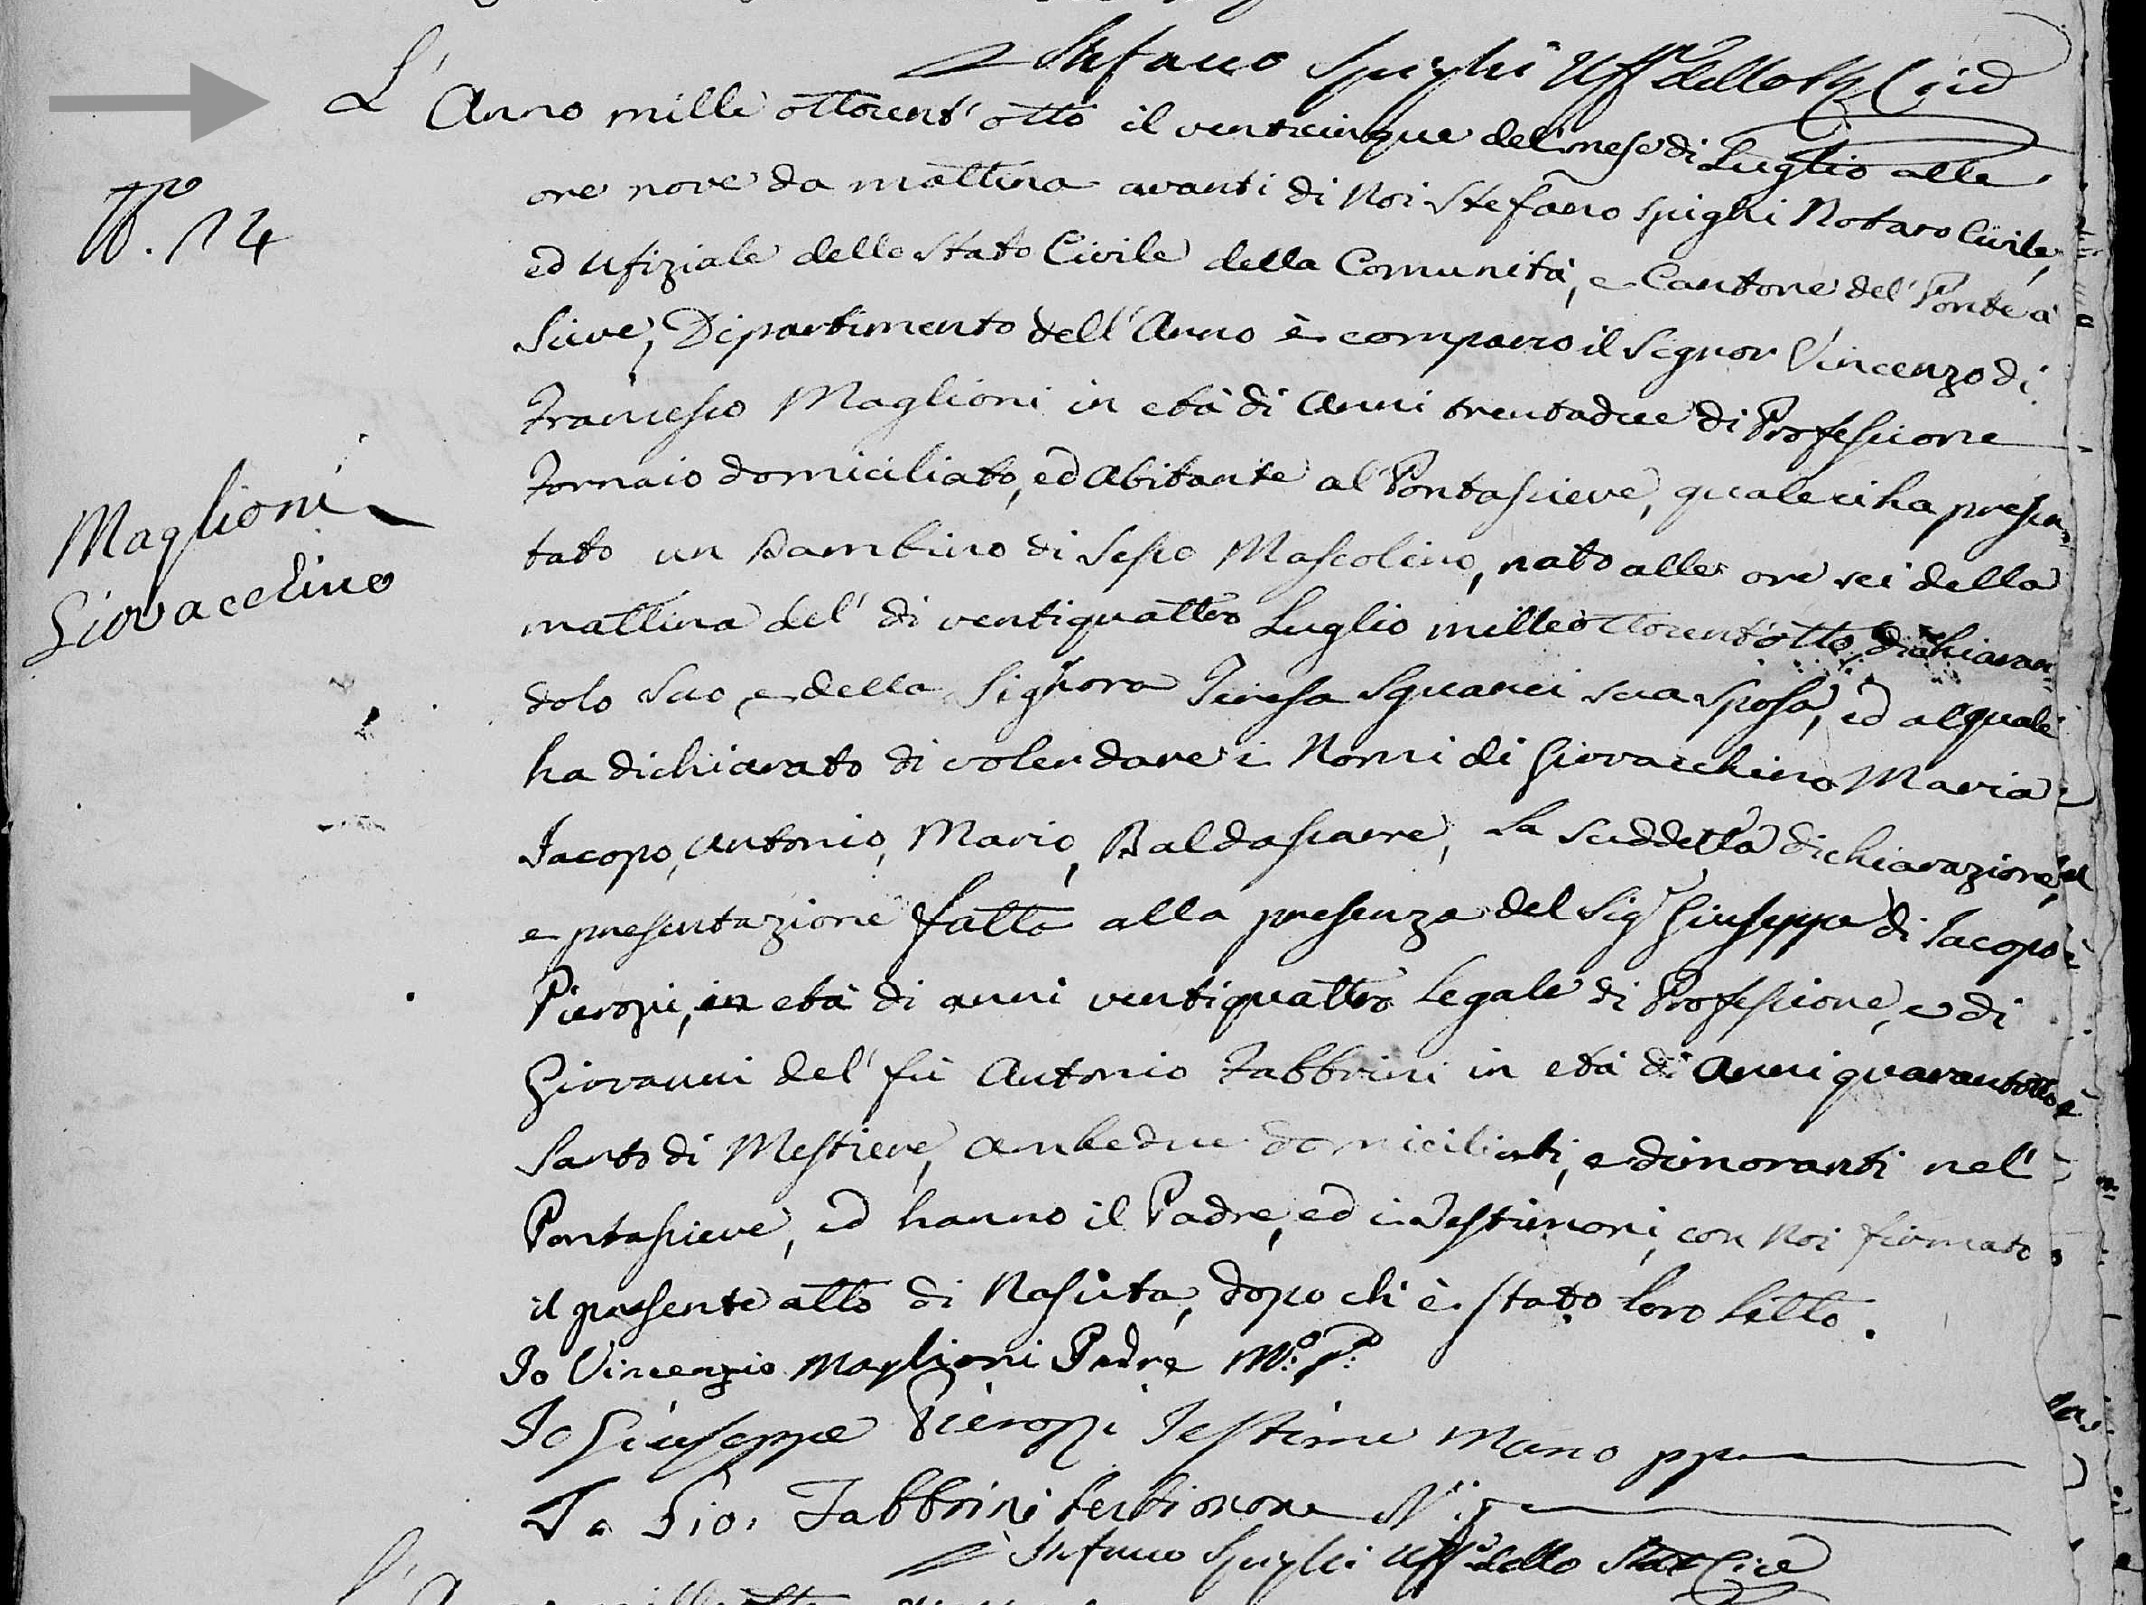 Stefano Spighi Uff dello Sta Civ
L' Anno mille ottocent' otto il venticinque del mese di Luglio alle
N.º 14
ore nove da mattina avanti di Noi Stefano Spighi Notaro Civile,
ed Ufiziale dello Stato Civile della Comunità, e Cantone del Ponte a
Sieve, Dipartimento dell' Arno è comparso il Signor Vincenzo di
Francesco Maglioni in età di Anni trentadue di Professione
Fornaio domiciliato, ed Abitante al Pontassieve, quale ci ha presen
Maglioni
tato un Bambino di Sesso Mascolino, nato alle ore sei della
Giovacchino
mattina del' di ventiquattro Luglio mille ottocent'otto, dichiaran
dolo suo, e della Signora Teresa Squarci sua Sposa, ed al quale
ha dichiarato di voler dare i Nomi di Giovacchino Maria
Jacopo, Antonio, Mario, Baldassarre, La suddetta dichiarazione,
e presentazione fatta alla presenza del Sigr Giuseppe di Jacopo
Pierozzi, in età di anni ventiquattro Legale di Professione, e di
Giovanni del' fù Antonio Fabbrini in età di Anni quarantotto
Sarto di Mestiere, ambedue domiciliati, e dimoranti nel'
Pontassieve, ed hanno il Padre, ed i Testimoni, con Noi firmato
il presente atto di Nascita, dopo chi è stato loro letto.
Io Vincenzio Maglioni Padre Mº. Pº.
Io Giuseppe Pierozzi Testimo Mano pp
Io Gio. Fabbrini testimone
Stefano Spighi Uff dello Stat Civ
L'